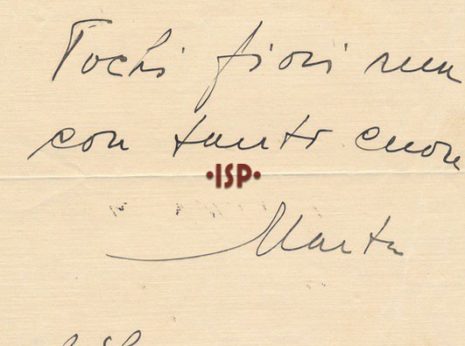 Pochi fiori ma
con tanto cuore
•ISP•
Marta